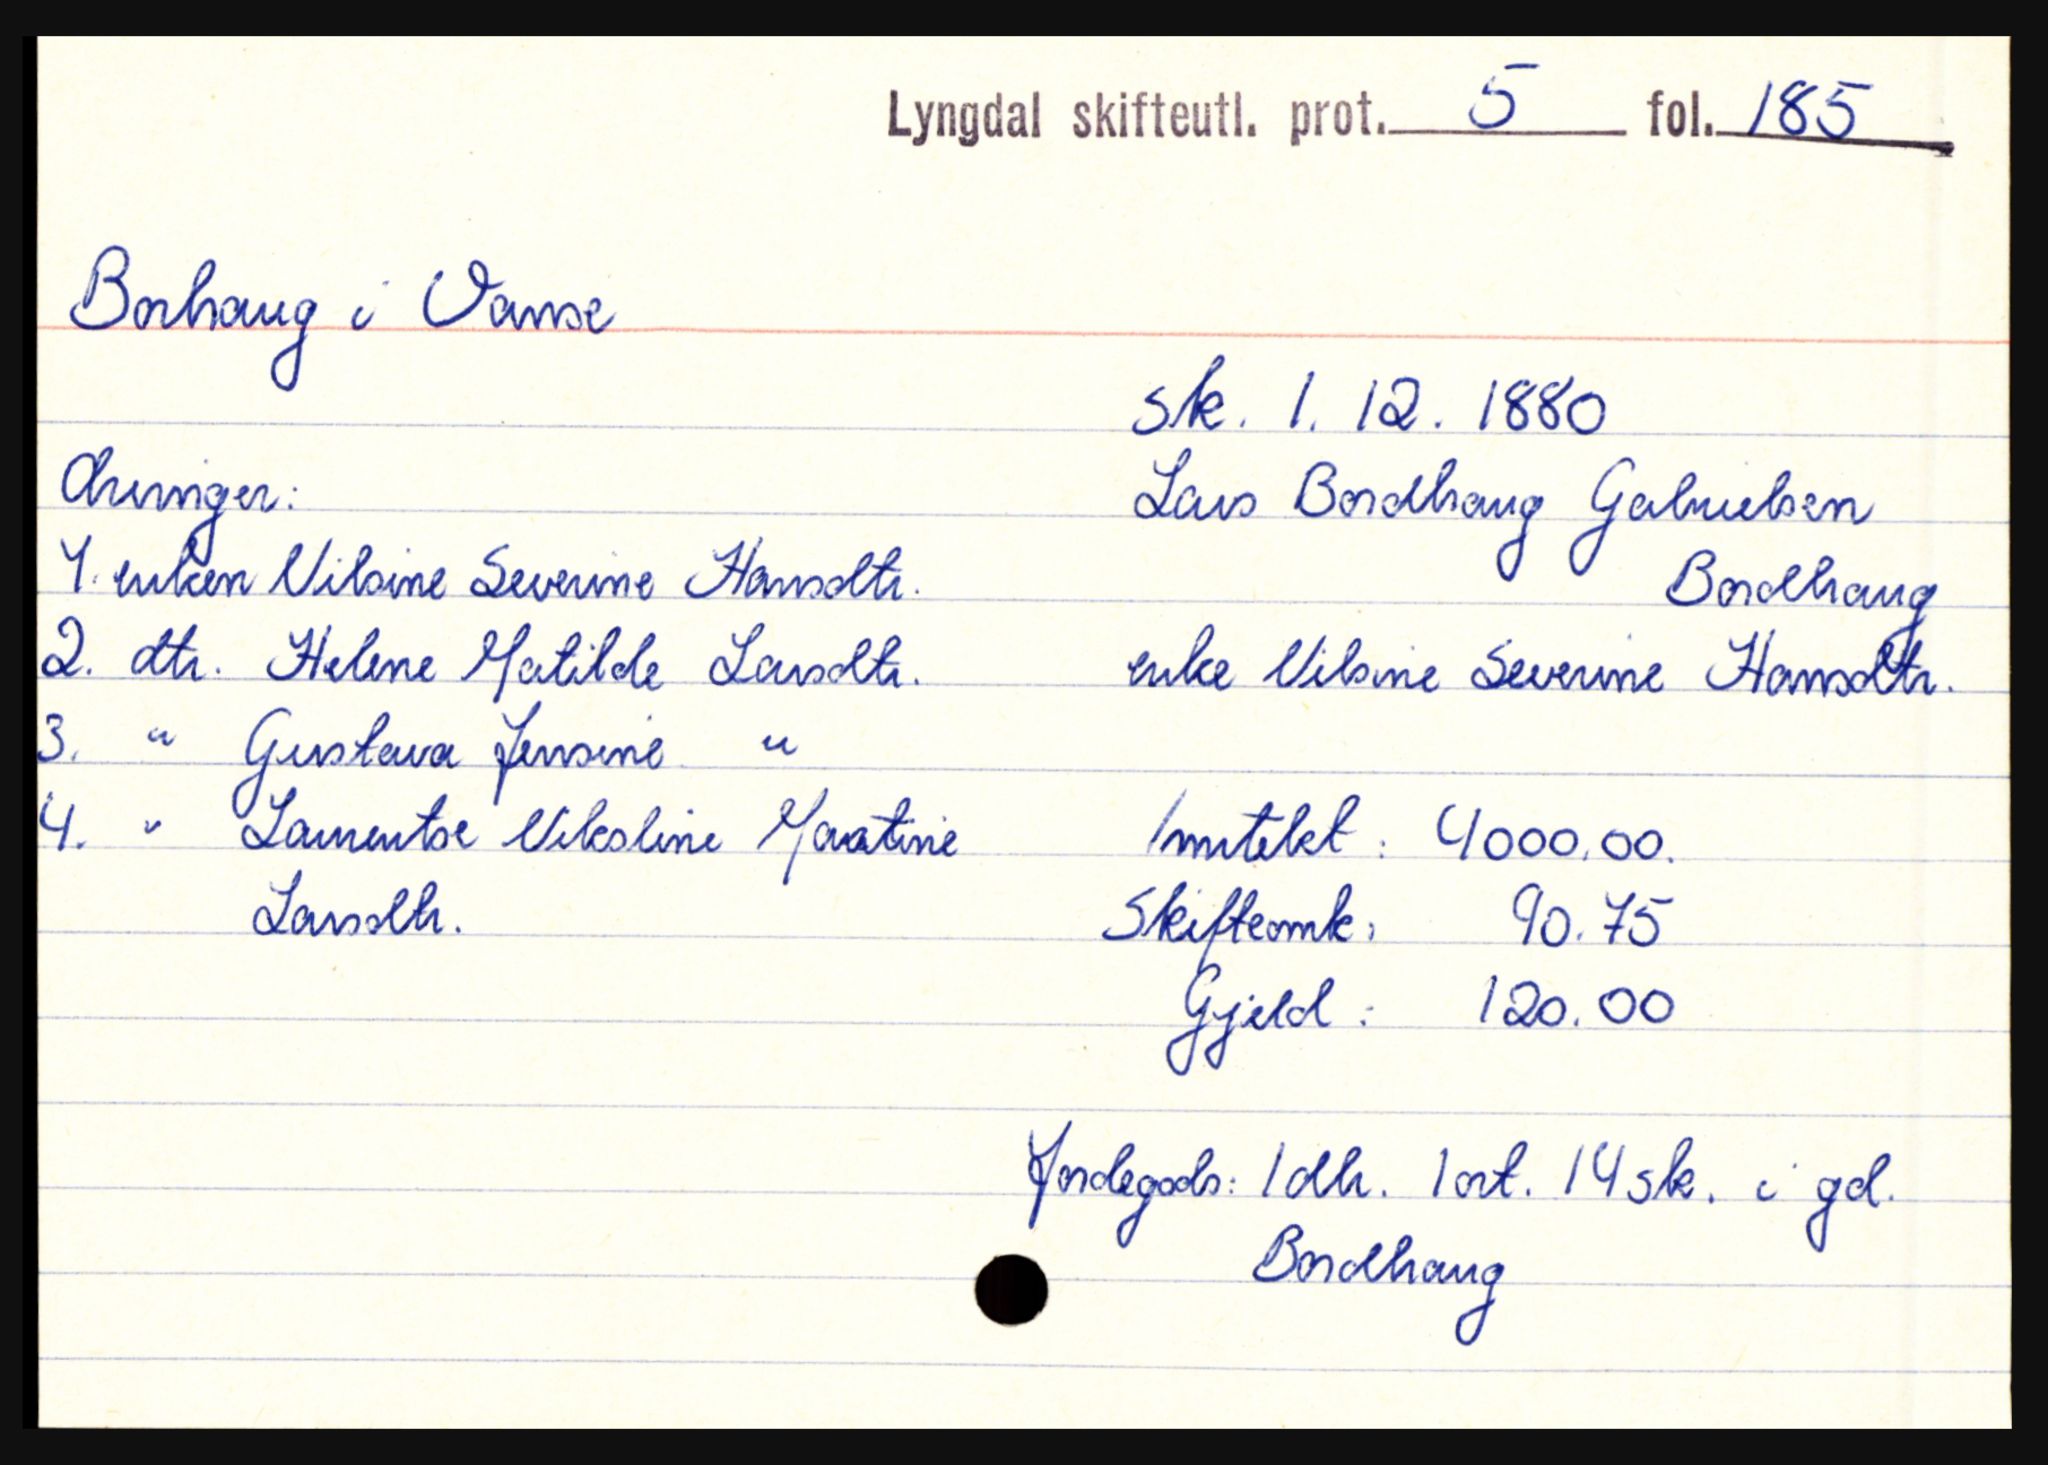 Lyngdal skifteutl. prot. 5 fol. 185
Borhaug i Vanse
sk. 1. 12. 1880
Arvinger:
Lars Bordhaug Gabrielsen
Bordhaug
1. enken Vilsine Severine Hansdtr.
enke Vilsine Severine Hansdtr.
2. dtr. Helene Matilde Larsdtr.
3. " Gustava Jensine "
4. " Laurentse Vikoline Martine
Larsdtr.
Inntekt: 4000.00.
Skifteomk: 90.75
Gjeld: 120.00
Jordegods: 1 dlr. 1 ort. 14 sk. i gd.
Bordhaug